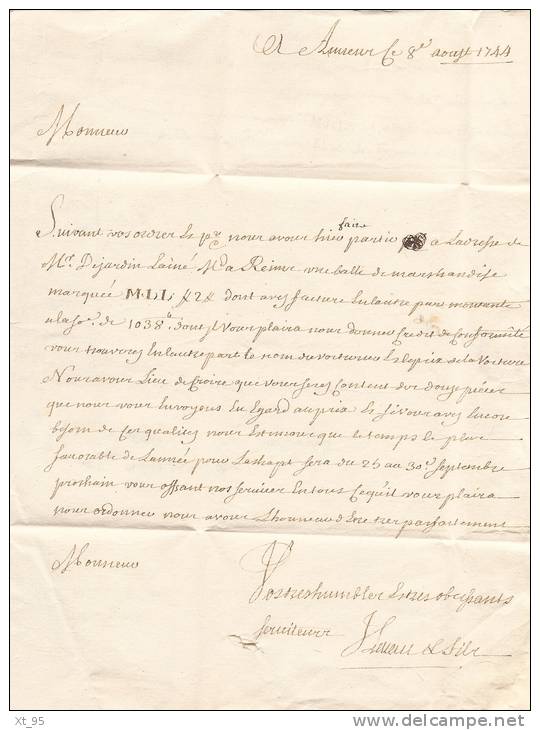 A Aumeur Ce 8e aoust 1744
Monsieur
faire
Suivant vos ordres Le pr nous avons hier partir a Ladresse de
Mr. Dejardin Lainé Md a Reims une balle de marchandise
marquée M.D.L. #2# dont avez facture En lautre part montante
a la so. de 1038 # dont Il Vous plaira nous donner Credit de Conformité
vous trouverez En lautre part le nom du voiturier Et le prix de la Voiture
Nous avons Lieu de Croire que vous serez Content des douze pieces
que nous vous Envoyons En Egard au prix Et si vous avez Encore
besoin de Ces qualitez nous Estimons que le temps le plus
favorable de Lannée pour Lachapt sera du 25 au 30e septembre
prochain vous offrant nos services En tous Ce qu'il vous plaira
nous ordonner nous avons Lhonneur d'Estre tres parfaitement
Monsieur
Vos tres humbles Et tres obeissants
serviteurs
& fils
Xt_95
delcampe.net